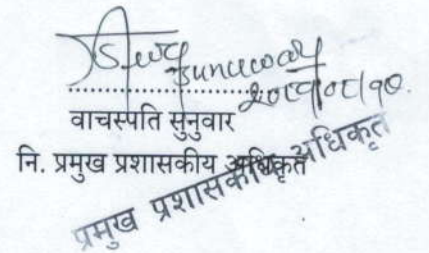 Sunuwar
....................
वाचस्पति सुनुवार
नि. प्रमुख प्रशासकीय अधिकृत
प्रमुख प्रशासकीय अधिकृत